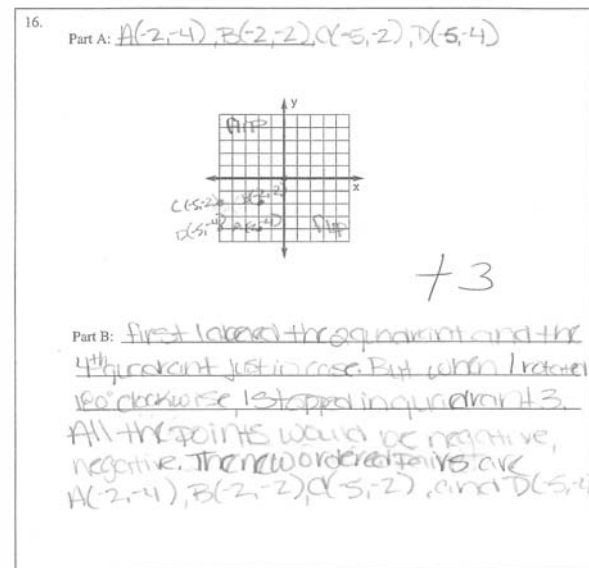 16.
Part A: A(-2,-4), B(-2,-2), C(-5,-2), D(-5,-4)
y
x
C(-5,-2) B(-2,-2)
D(-5,-4) A(-2,-4)
+3
Part B: first labeled the 2 quadrant and the
4th quadrant just in case. But when I rotated
180° clockwise, I stopped in quadrant 3.
All the points would be negative,
negative. The new ordered pairs are
A(-2,-4), B(-2,-2), C(-5,-2), and D(-5,-4